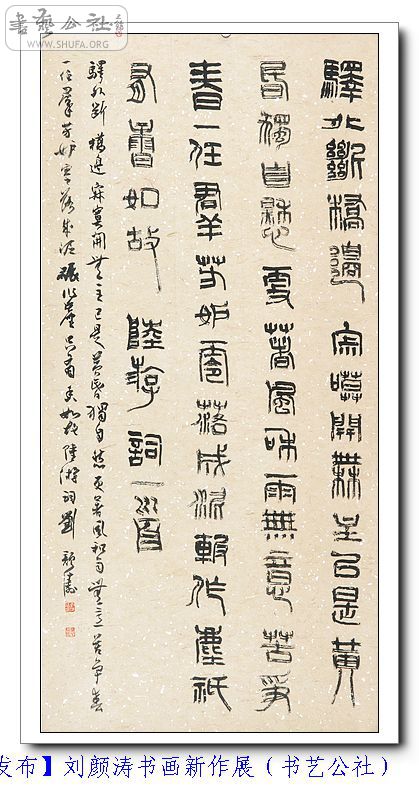 書藝公社
WWW.SHUFA.ORG
驛外斷橋邊寂寞開無主已是黃
昏獨自愁更著風和雨無意苦爭
春一任群芳妒零落成泥輾作塵祇
有香如故陸游詞一首
驛外斷橋邊寂寞開無主已是黃昏獨自愁更著風和雨無意苦爭春
一任羣芳妒零落成泥碾作塵只有香如故陸游詞劉顏濤
发布】刘颜涛书画新作展（书艺公社）